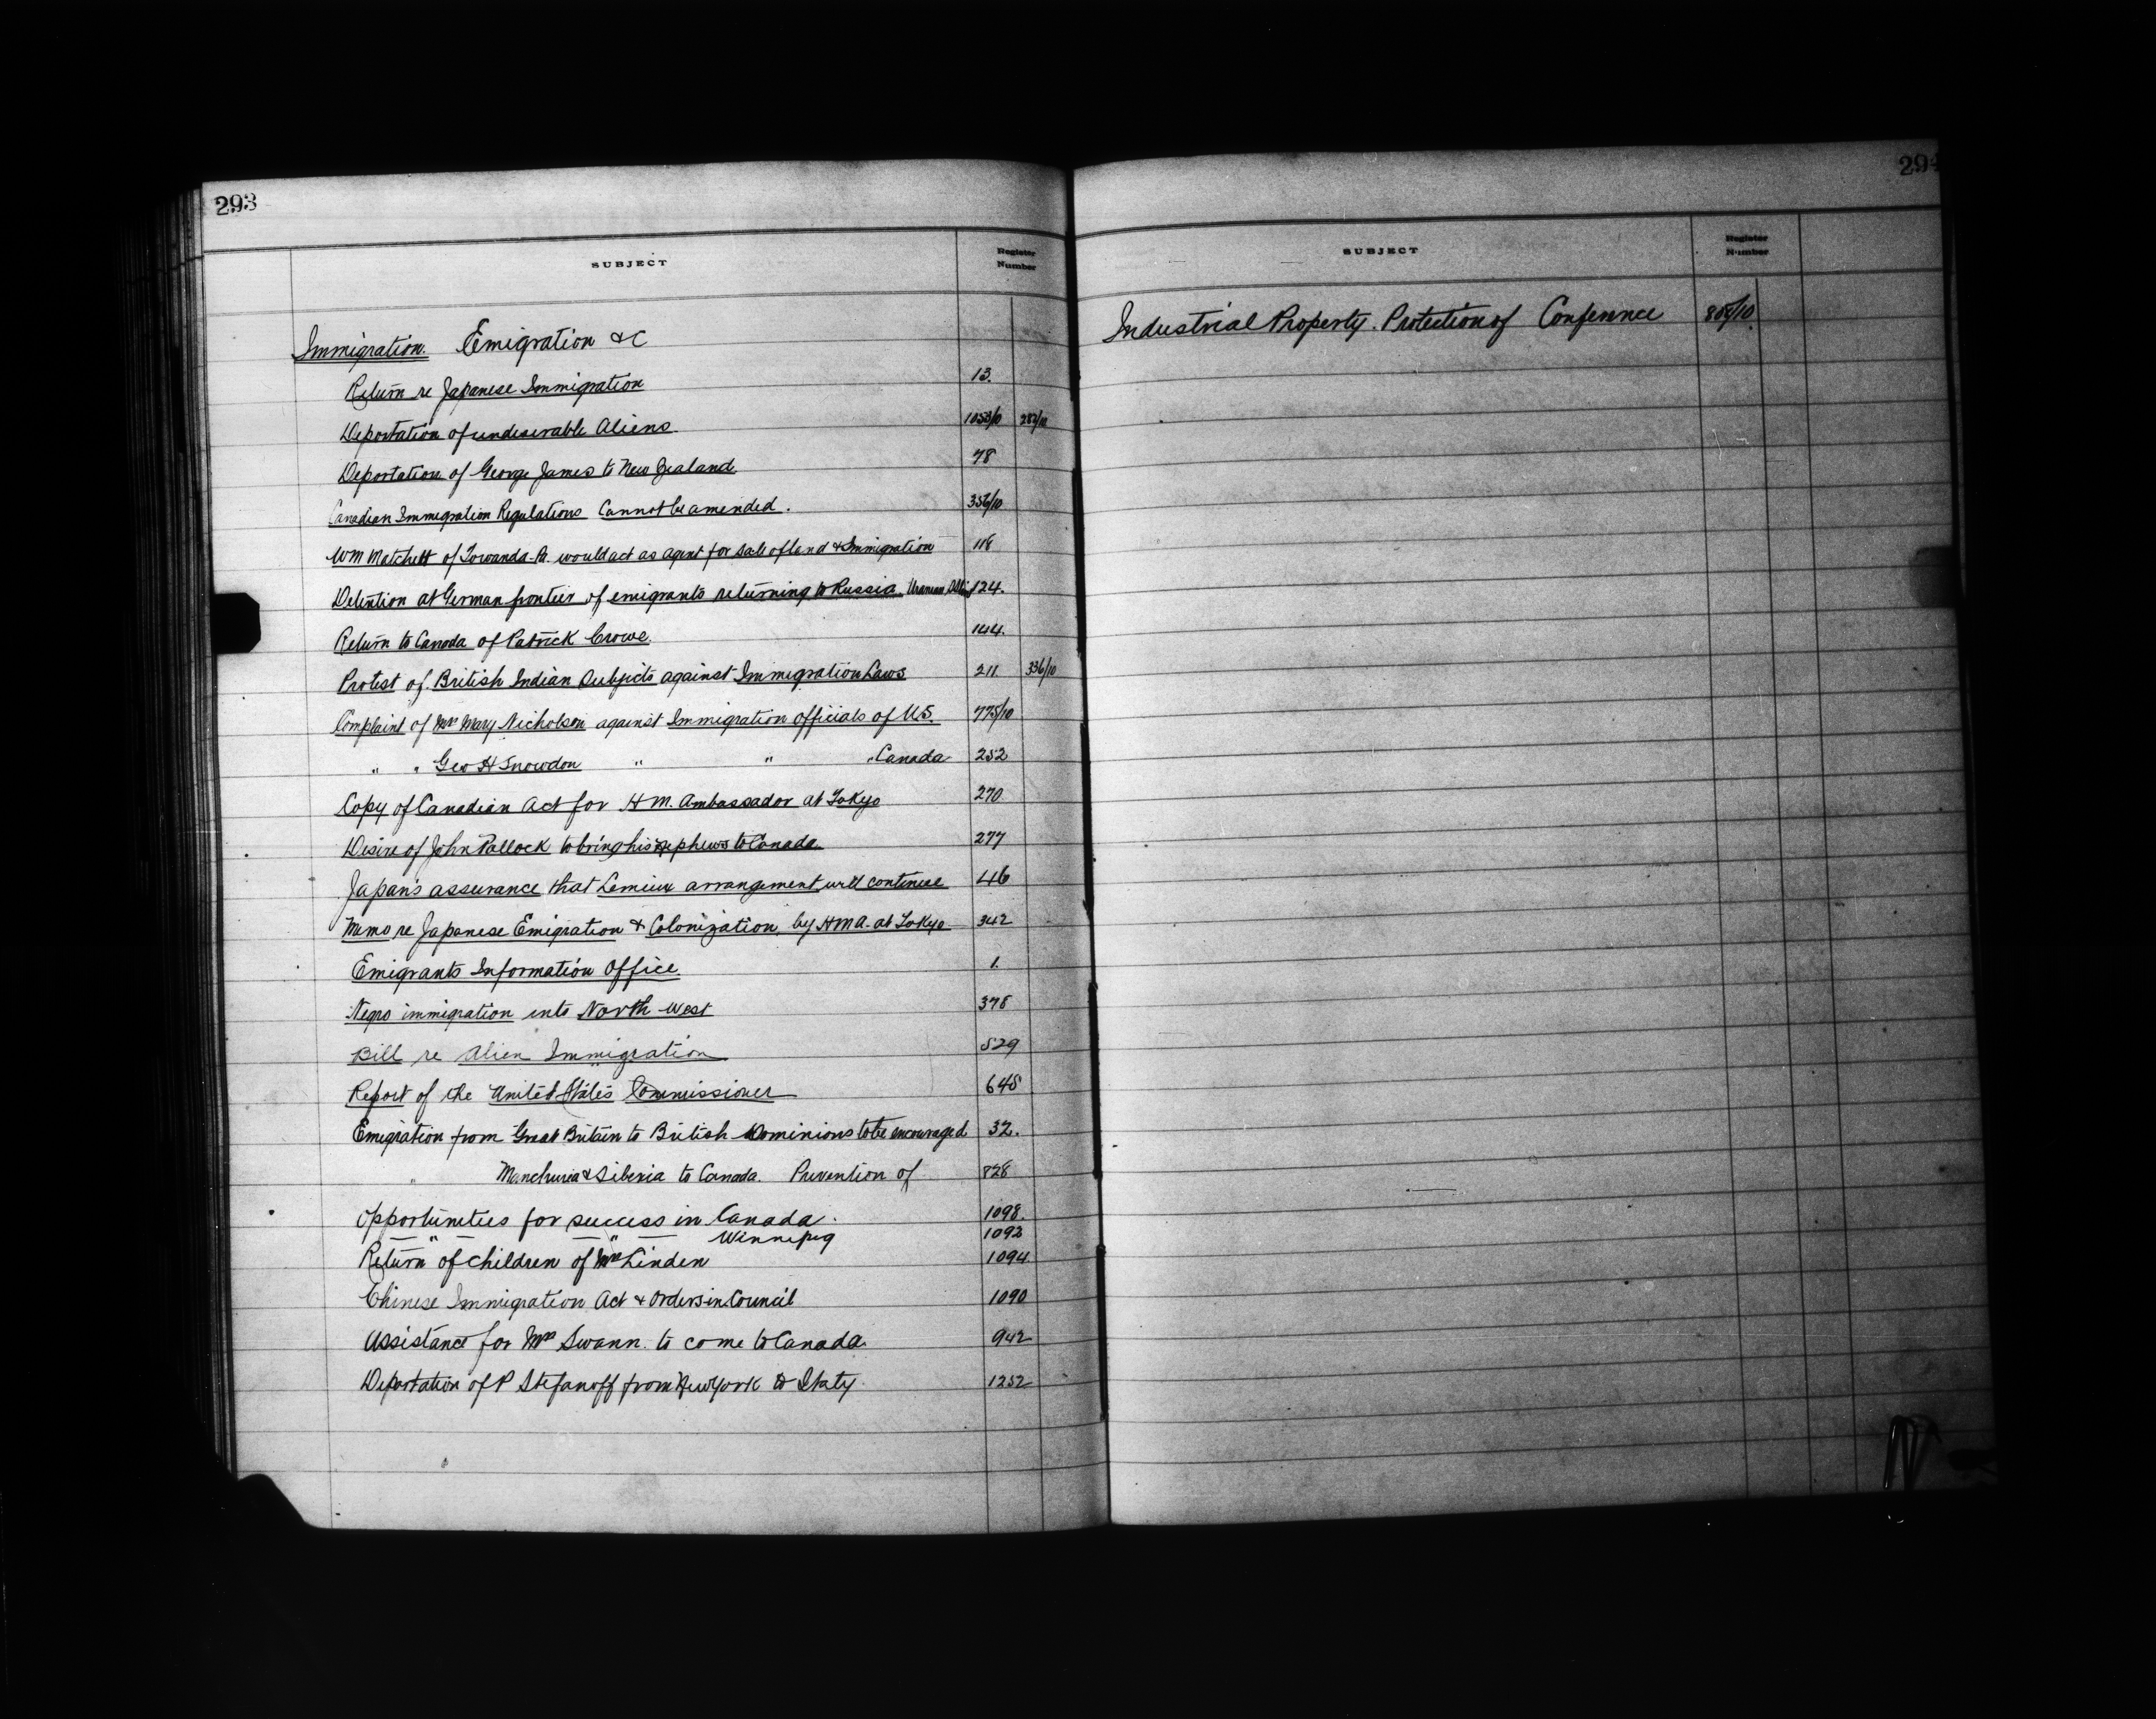 293
SUBJECT Register Number
Immigration. Emigration &c
Return re Japanese Immigration 13.
Deportation of undesirable Aliens 1053/10 282/10
Deportation of George James to New Zealand 78
Canadian Immigration Regulations Cannot be amended. 356/10
Wm Matchett of Towanda-Pa. would act as agent for sale of land & Immigration 118
Detention at German frontier of emigrants returning to Russia. 124.
Return to Canada of Patrick Crowe. 144.
Protest of British Indian Subjects against Immigration Laws 211 336/10
Complaint of Mrs Mary Nicholson against Immigration officials of U.S. 775/10
" " Geo H Snowdon " " " Canada 252
Copy of Canadian Act for H M. Ambassador at Tokyo 270
Desire of John Pollock to bring his nephews to Canada 277
Japan's assurance that Lemieux arrangement will continue 46
Memo re Japanese Emigration & Colonization by HMA. at Tokyo 342
Emigrants Information Office 1.
Negro immigration into North-West 378
Bill re Alien Immigration 529
Report of the United States Commissioner 648
Emigration from Great Britain to British Dominions to be encouraged 32.
" Manchuria & Siberia to Canada. Prevention of 828
Opportunities for success in Canada. 1098.
— " — — " — Winnipeg 1092
Return of children of Mrs Linden 1094
Chinese Immigration Act & Orders in Council 1090
Assistance for Mrs Swann to come to Canada. 942
Deportation of P Stefanoff from New York to Italy. 1252
294
SUBJECT Register Number
Industrial Property. Protection of Conference